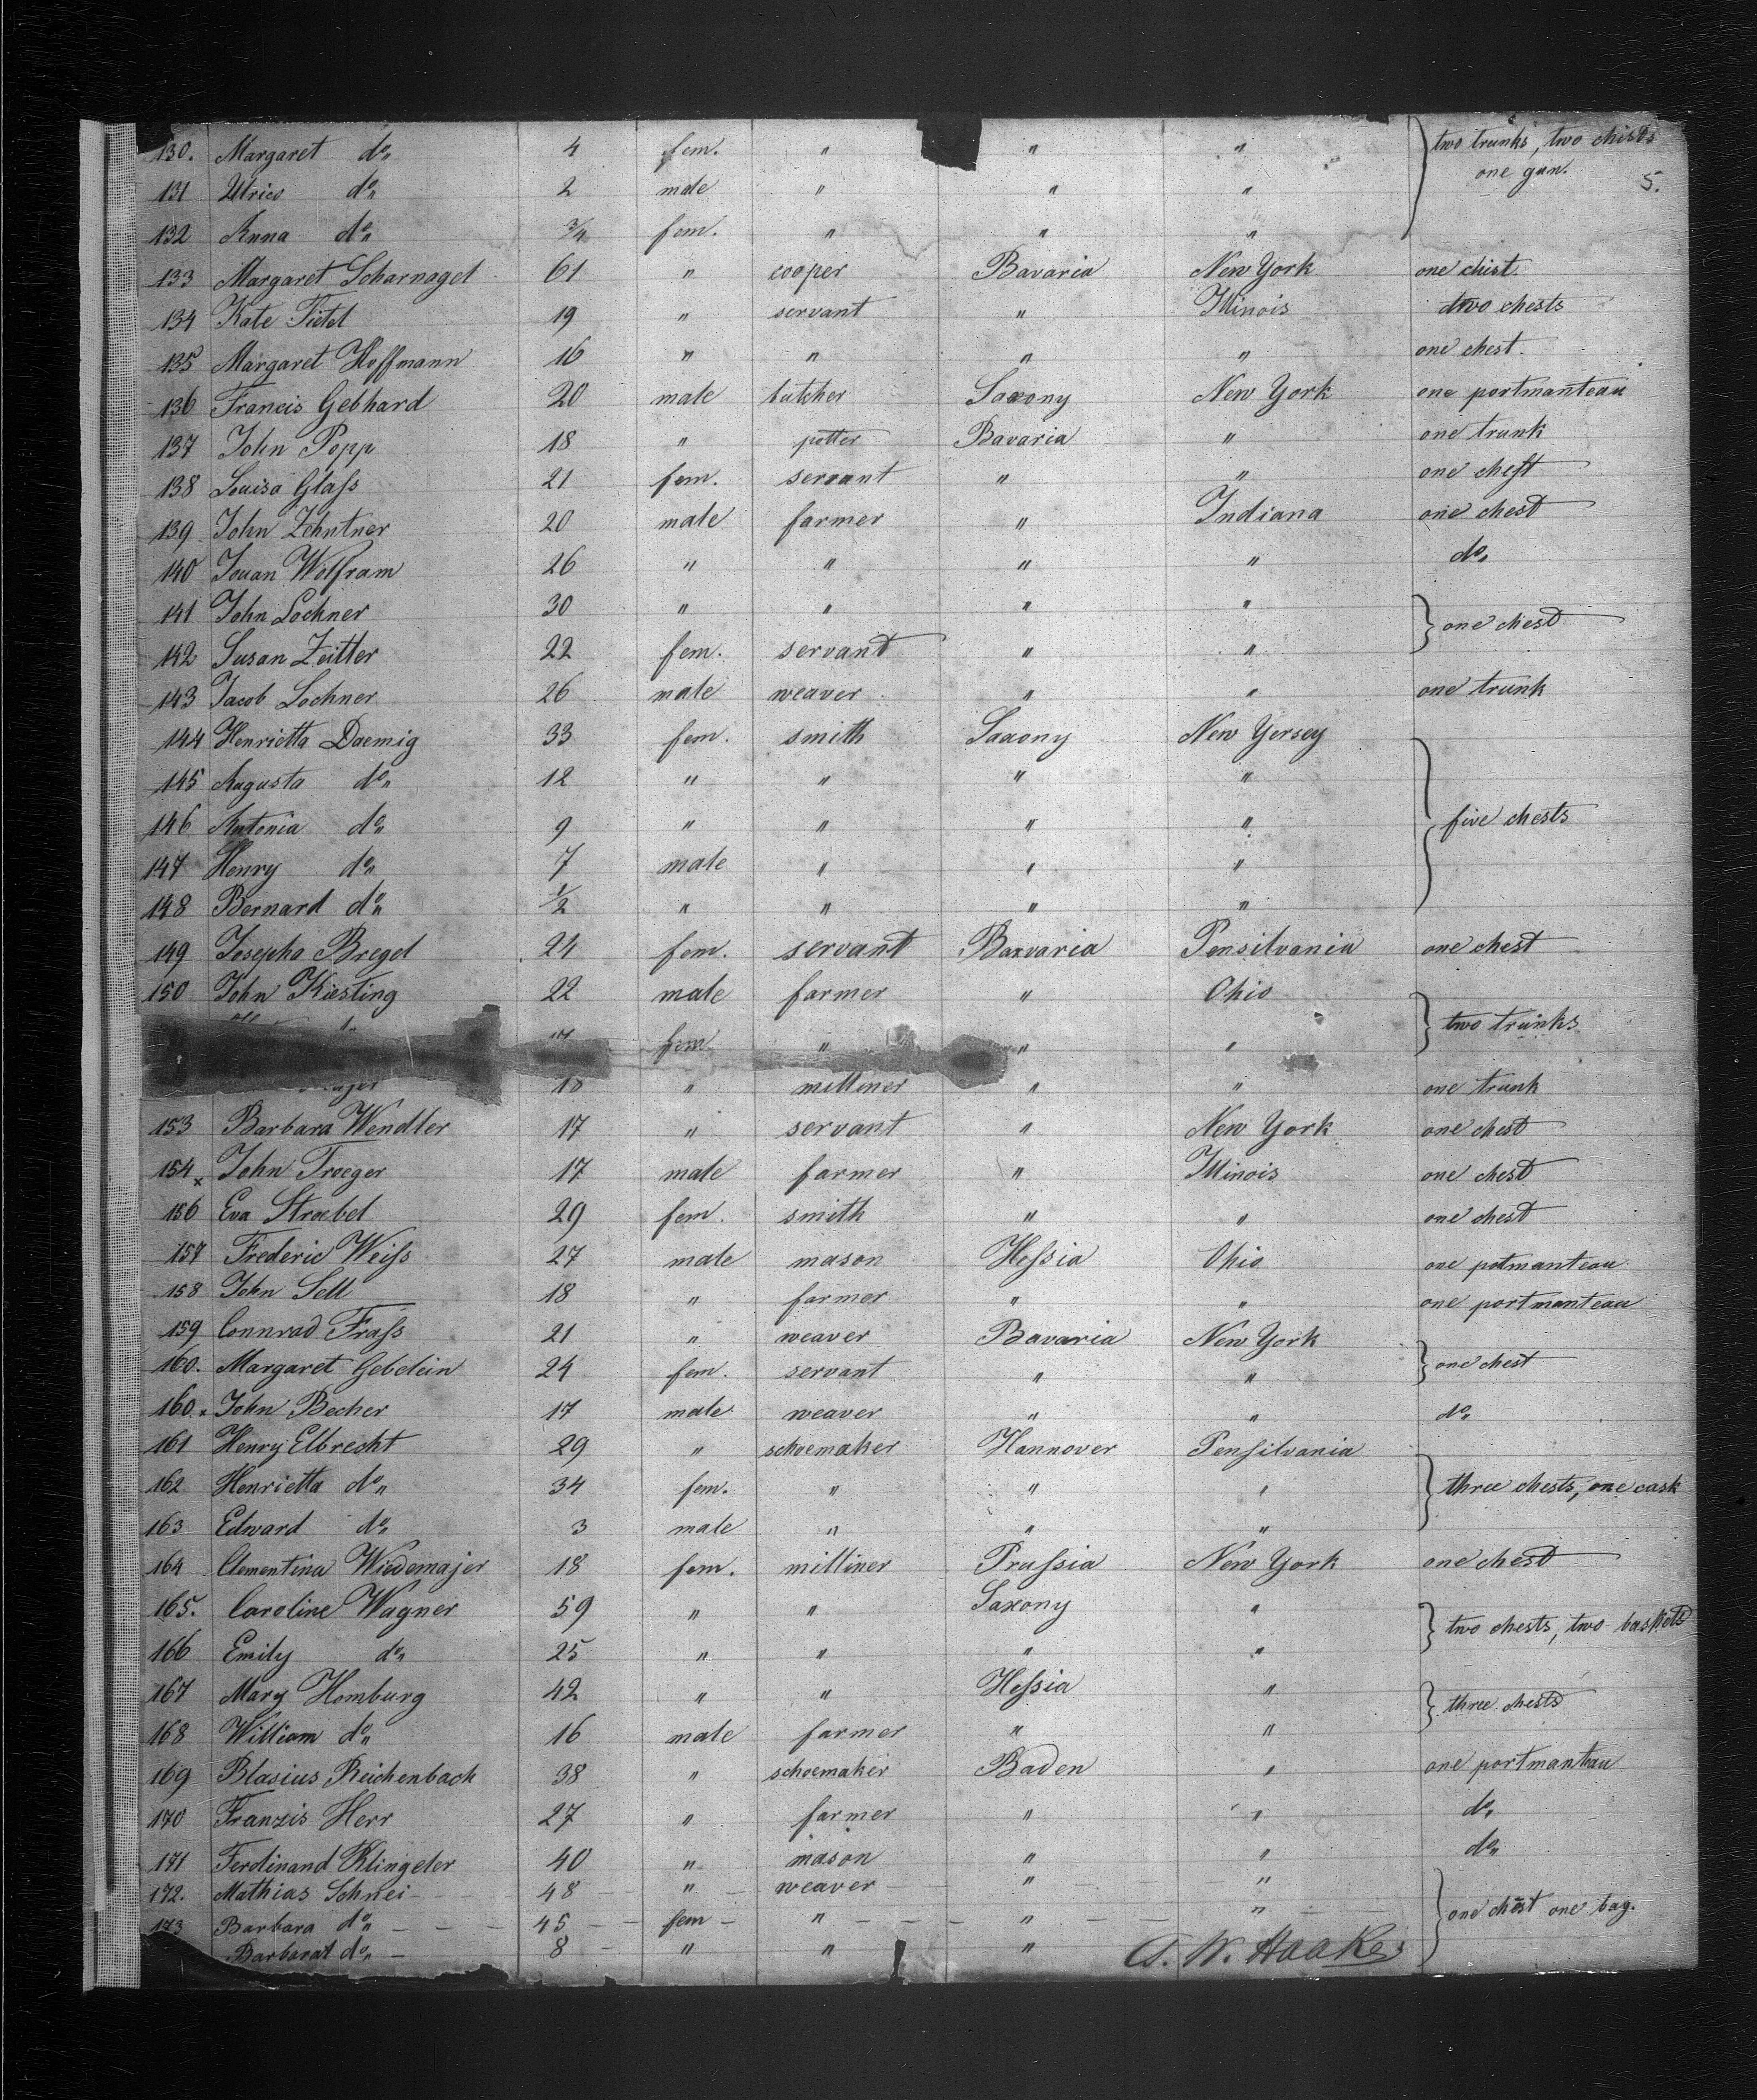 130. Margaret do„ 4 fem. „ „ „ two trunks, two chists
one gun. 5.
131 Ulrico do„ 2 male „ „ „
132 Anna do„ 3/4 fem. „ „ „
133 Margaret Scharnagel 61 „ cooper Bavaria New York one chist
134 Kate Tietel 19 „ servant „ Illinois two chests
135 Margaret Hoffmann 16 „ „ „ „ one chest.
136 Francis Gebhard 20 male butcher Saxony New York one portmanteau
137 John Popp 18 „ potter Bavaria „ one trunk
138 Louisa Glaſs 21 fem. servant „ „ one chest
139 John Zehntner 20 male farmer „ Indiana one chest
140 Jouan Wolfram 26 „ „ „ „ do„
141 John Lochner 30 „ „ „ „
one chest
142 Susan Zeitler 22 fem. servant „ „
143 Jacob Lochner 26 male weaver „ „ one trunk
144 Henrietta Daemig 33 fem. smith Saxony New Yersey
145 Augusta do„ 12 „ „ „ „
146 Antonia do„ 9 „ „ „ „ five chests
147 Henry do„ 7 male „ „ „
148 Bernard do„ 1/2 „ „ „ „
149 Josepha Bregel 24 fem. servant Barvaria Pensilvania one chest
150 John Kiesting 22 male farmer „ Ohio
two trunks
fem „ „ „
18 „ milliner „ „ one trunk
153 Barbara Wendler 17 „ servant „ New York one chest
154 x John Troeger 17 male farmer „ Illinois one chest
156 Eva Stroebel 29 fem. smith „ „ one chest
157 Frederic Weiſs 27 male mason Heſsia Ohio one potmanteau
158 John Sell 18 „ farmer „ „ one portmanteau
159 Connrad Fraſs 21 „ weaver Bavaria New York
one chest
160. Margaret Gebelein 24 fem. servant „ „
160 x John Becher 17 male weaver „ „ do„
161 Henry Elbrecht 29 „ schoemaker Hannover Penſilvania
162 Henrietta do„ 34 fem. „ „ „ three chests, one cask
163 Edward do„ 3 male „ „ „
164 Clementina Wiedemajer 18 fem. milliner Pruſsia New York one chest
165. Caroline Wagner 59 „ „ Saxony „
two chests, two baskets
166 Emily do„ 25 „ „ „ „
167 Mary Homburg 42 „ „ Heſsia „
three chests
168 William do„ 16 male farmer „ „
169 Blasius Reichenbach 38 „ schoemaker Baden „ one portmanteau
170 Franzis Herr 27 „ farmer „ „ do„
171 Ferdinand Klingeler 40 „ mason „ „ do„
172. Mathias Schnei 48 „ weaver „ „
173 Barbara do„ 45 fem „ „ „ one chest one bag.
Barbarat do„ 8 „ „ „